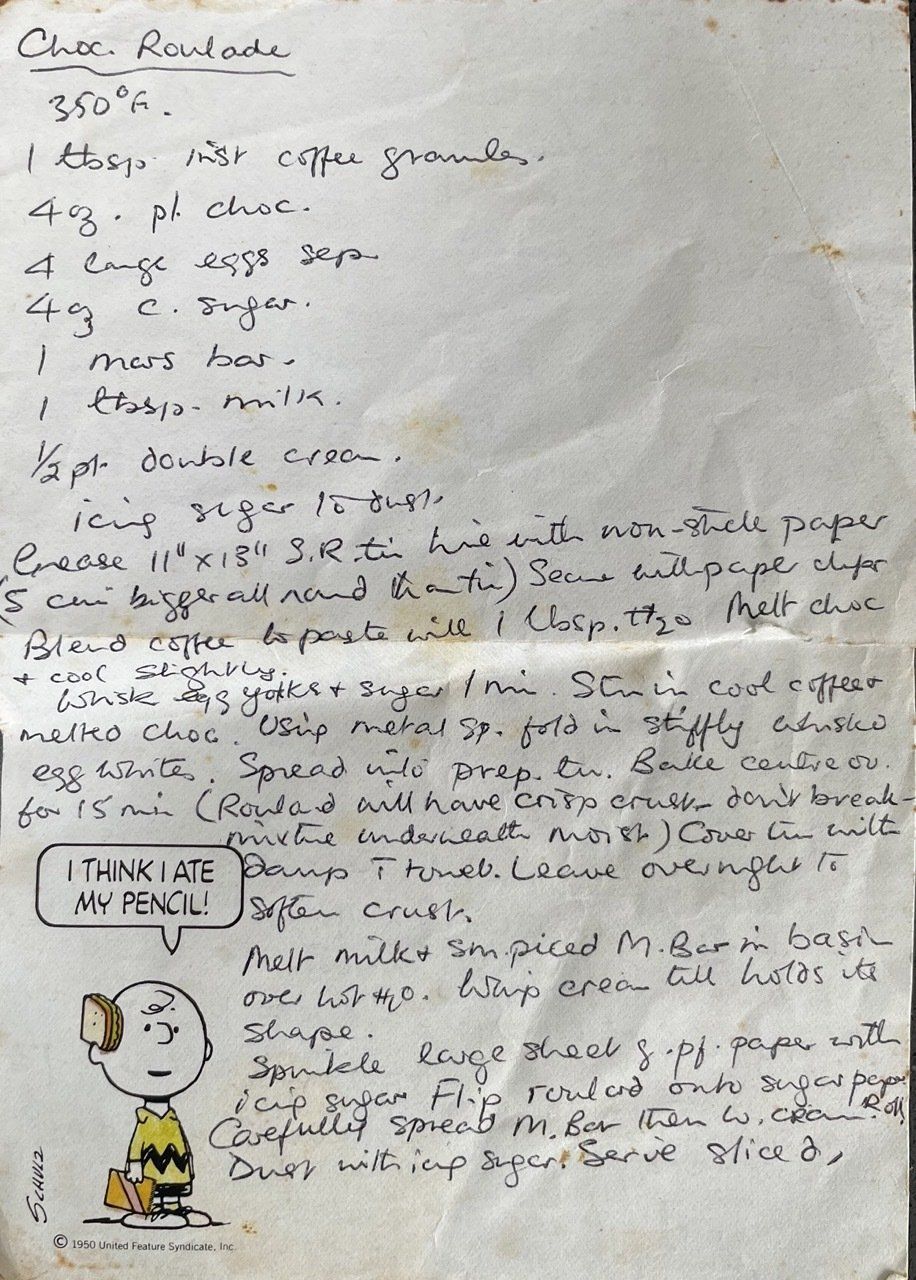 Choc. Roulade
350°F.
1 tbsp. inst coffee granules.
4 oz. pl. choc.
4 large eggs sep
4 oz c. sugar.
1 mars bar.
1 tbsp. milk.
1/2 pt. double cream.
icing sugar to dust.
Grease 11" x 13" S.R. tin line with non-stick paper
(5 cm bigger all round than tin) Secure with paper clips
Blend coffee to paste with 1 tbsp. H2O Melt choc
+ cool slightly.
Whisk egg yolks + sugar 1 min. Stir in cool coffee +
melted choc. Using metal sp. fold in stiffly whisked
egg whites. Spread into prep. tin. Bake centre ov.
for 15 min (Roulad will have crisp crust - don't break -
mixture underneath moist) Cover tin with
damp T towel. Leave overnight to
soften crust.
Melt milk + sm. piced M. Bar in basin
over hot H2O. Whip cream till holds its
shape.
Sprinkle large sheet g. pf. paper with
icing sugar Flip roulard onto sugar paper
Carefully spread M. Bar then w. cream Roll.
Dust with icing sugar. Serve sliced,
I THINK I ATE
MY PENCIL!
SCHULZ
© 1950 United Feature Syndicate, Inc.